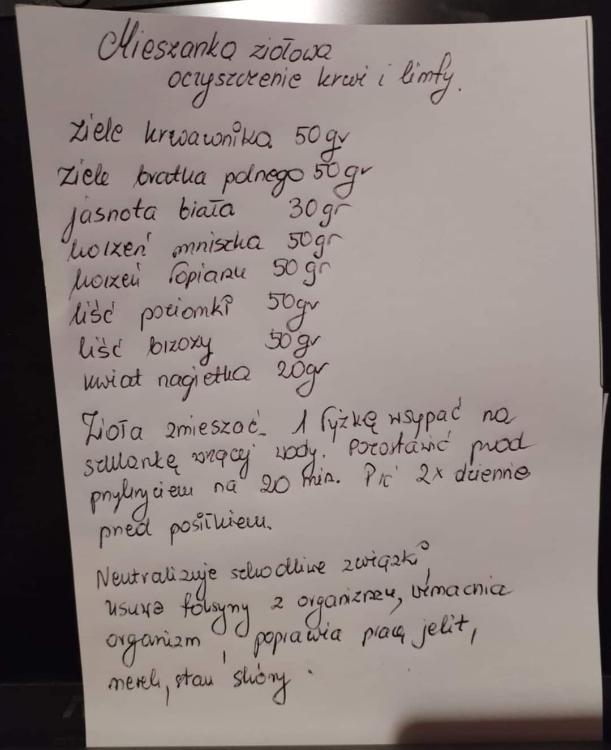 Mieszanka ziołowa
oczyszczenie krwi i limfy.
ziele krwawnika 50gr
ziele bratka polnego 50gr
jasnota biała 30gr
korzeń mniszka 50gr
korzeń łopianu 50gr
liść poziomki 50gr
liść brzozy 50gr
kwiat nagietka 20gr
Zioła zmieszać. 1 łyżkę wsypać na
szklankę wrzącej wody. Pozostawić pod
przykryciem na 20 min. Pić 2x dziennie
przed posiłkiem.
Neutralizuje szkodliwe związki,
usuwa toksyny z organizmu, wzmacnia
organizm, poprawia pracę jelit,
nerek, stan skóry.